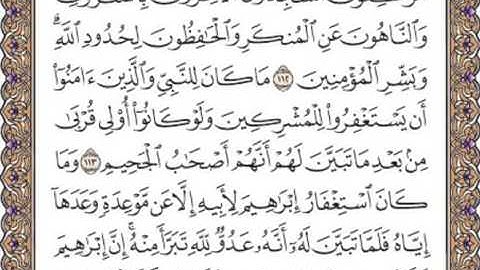 وَٱلنَّاهُونَ عَنِ ٱلْمُنكَرِ وَٱلْحَٰفِظُونَ لِحُدُودِ ٱللَّهِۗ
وَبَشِّرِ ٱلْمُؤْمِنِينَ ١١٢ مَا كَانَ لِلنَّبِيِّ وَٱلَّذِينَ ءَامَنُوٓا۟
أَن يَسْتَغْفِرُوا۟ لِلْمُشْرِكِينَ وَلَوْ كَانُوٓا۟ أُو۟لِى قُرْبَىٰ
مِنۢ بَعْدِ مَا تَبَيَّنَ لَهُمْ أَنَّهُمْ أَصْحَٰبُ ٱلْجَحِيمِ ١١٣ وَمَا
كَانَ ٱسْتِغْفَارُ إِبْرَٰهِيمَ لِأَبِيهِ إِلَّا عَن مَّوْعِدَةٍ وَعَدَهَآ
إِيَّاهُ فَلَمَّا تَبَيَّنَ لَهُۥٓ أَنَّهُۥ عَدُوٌّ لِّلَّهِ تَبَرَّأَ مِنْهُۚ إِنَّ إِبْرَٰهِيمَ